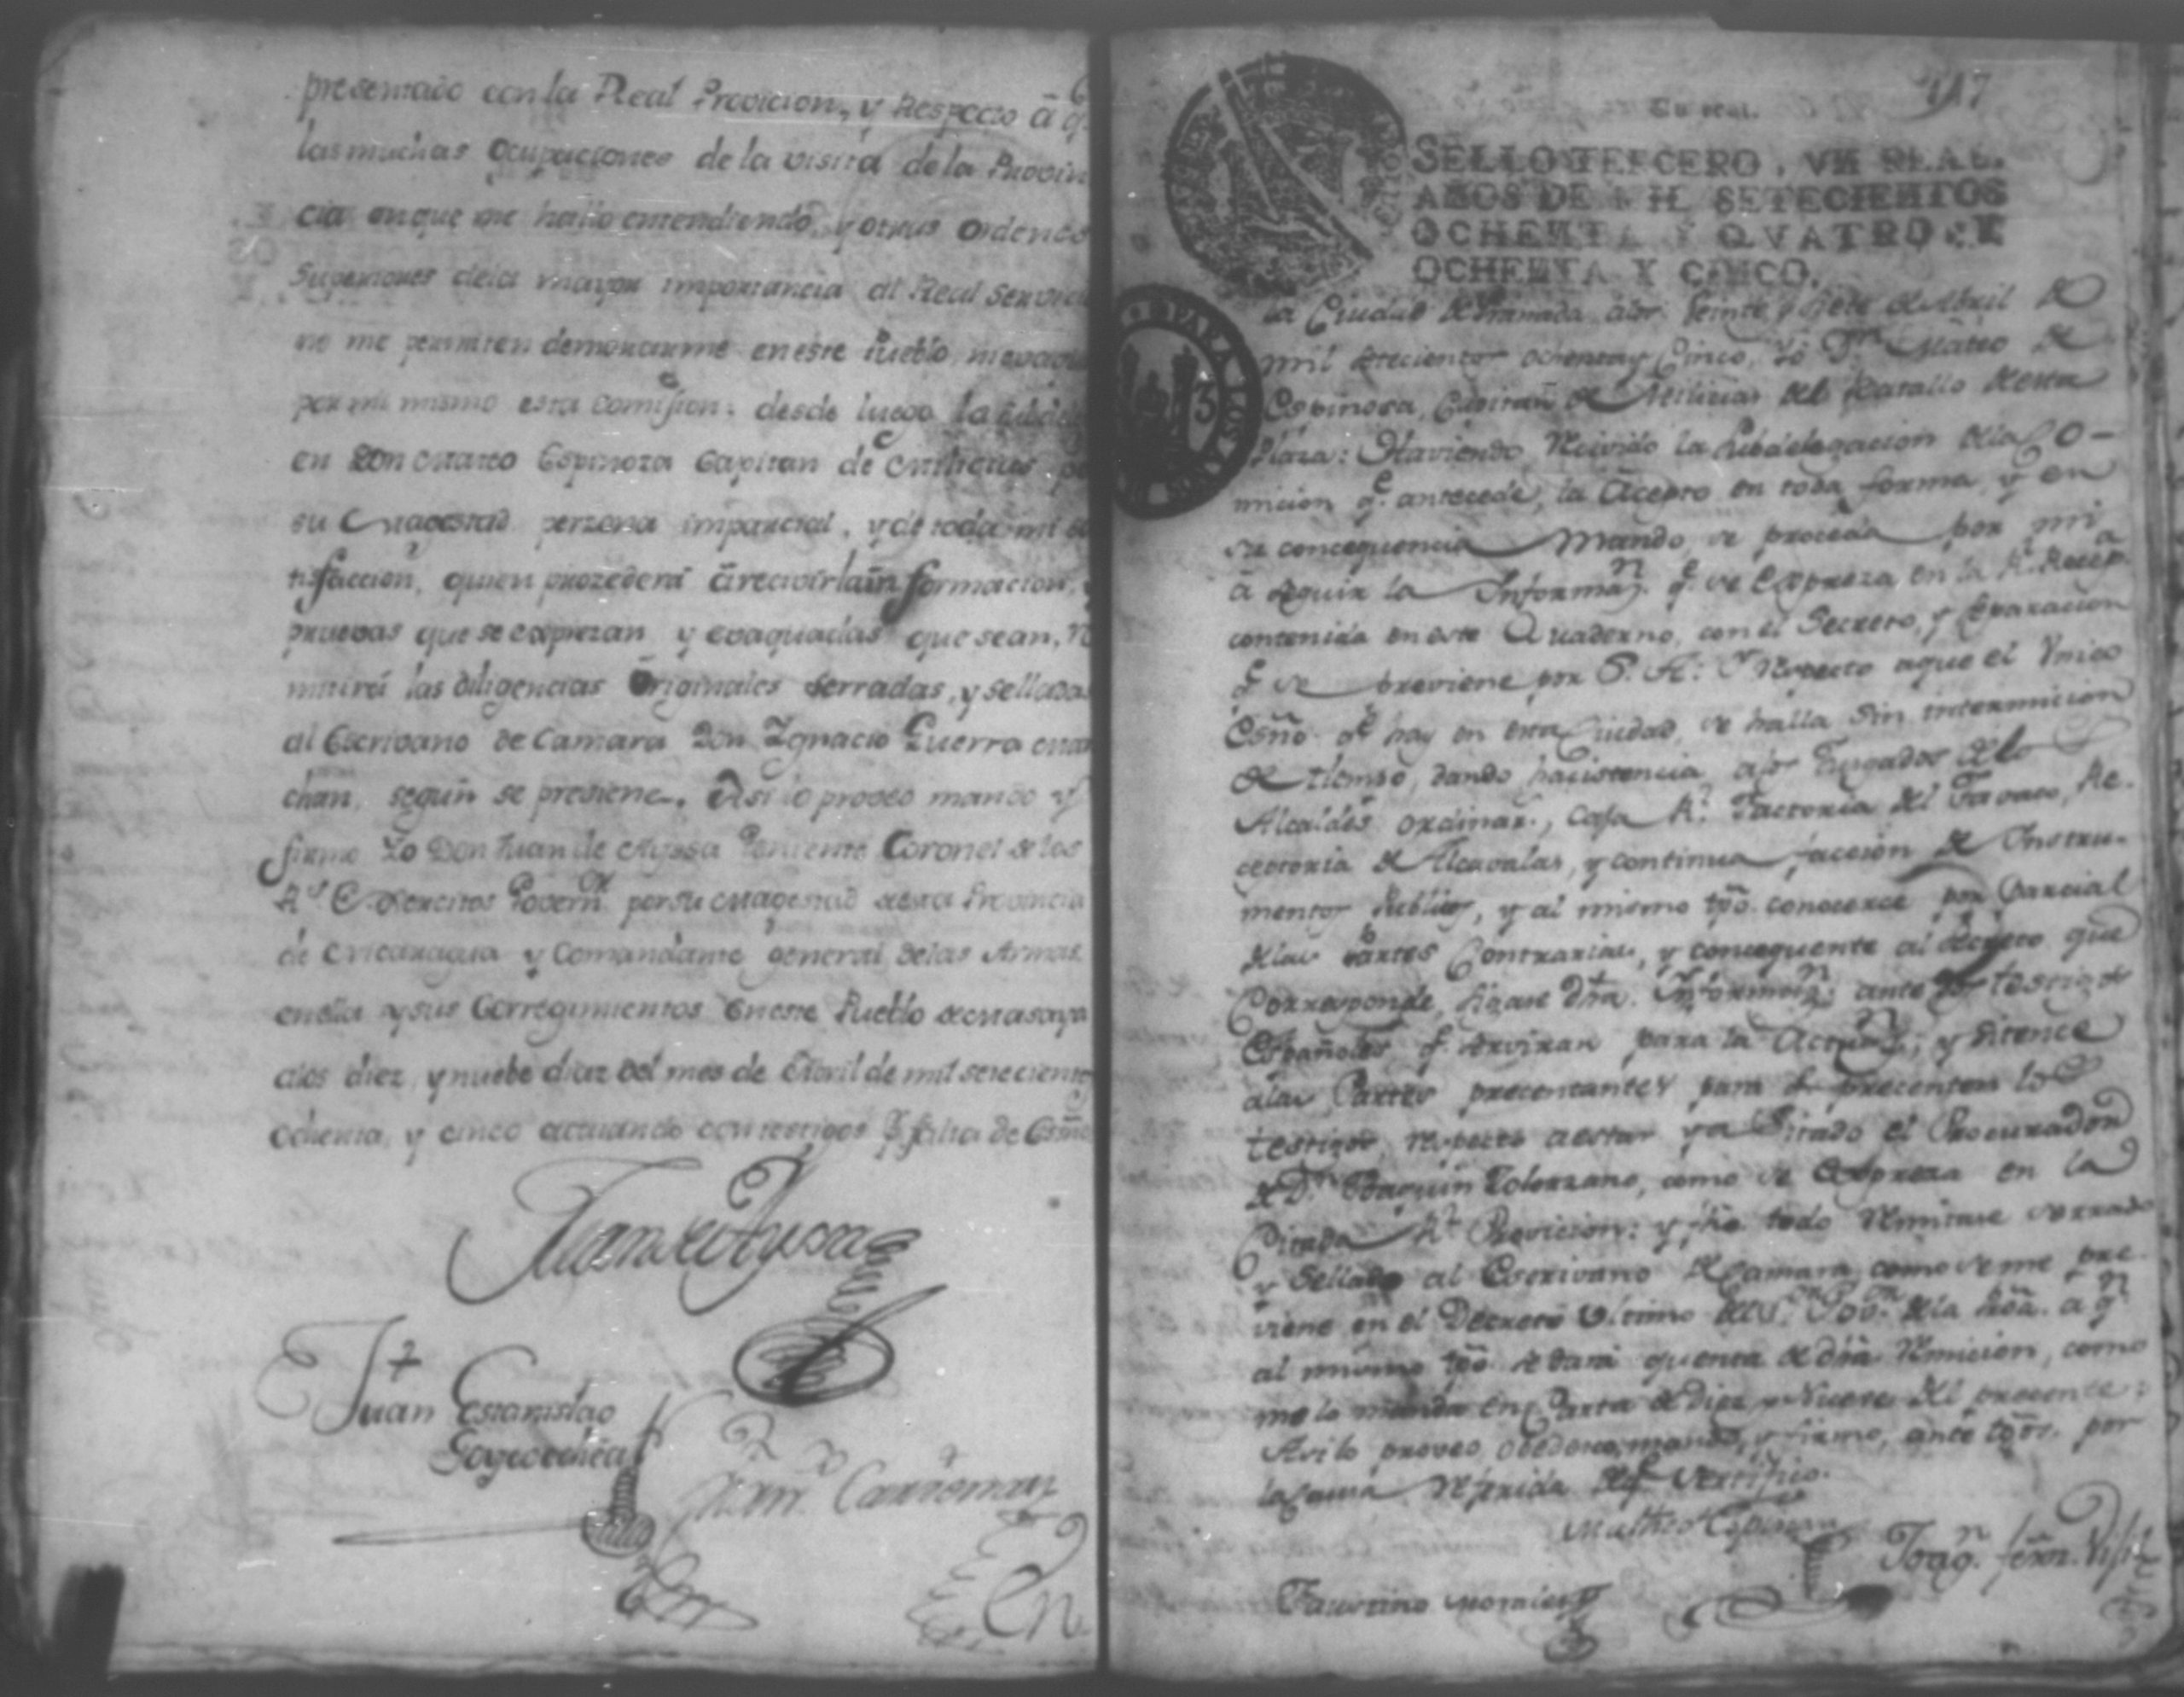 presentado con la Real Provicion, y Respecto â q.e
las muchas ocupaciones de la visita de la Provin
cia en que me hallo entendiendo, y otras ordenes
Superiores dela mayor importancia al Real Servicio
no me permiten demorarme en este Pueblo
por mi mismo esta Comision: desde luego la
en Don Mateo Espinoza Capitan de Milicias p.r
su Magestad perzona imparcial, y de toda mi sa
tisfaccion, quien prozederá â recivir la informacion, y
pruevas que se exprezan y evaquadas que sean, Re
mitirá las diligencias originales serradas, y selladas
al Escrivano de Camara Don Ignacio Guerra Mar
chan, segun se previene. Asi lo proveo mando y
firmo Yo Don Juan de Ayssa Teniente Coronel de los
R.s Exercitos Govern.or por su Magestad de esta Provincia
de Nicaragua y Comandante general de las Armas
en ella y sus Corregimientos en este Pueblo de Masaya
a los diez y nuebe dias del mes de Abril de mil setecientos
ochenta, y cinco actuando con testigos p.r falta de Esño
Juan de Ayssa
Juan Estanislao
Goyecochea
En
117
Un real.
SELLO TERCERO, VN REAL.
AÑOS DE MIL SETECIENTOS
OCHENTA Y QVATRO, Y
OCHENTA Y CINCO.
PARA LOS AÑOS
la Ciudad de Granada alos Veinte y siete de Abril de
mil setecientos ochenta y Cinco. Yo D.n Mateo de
Espinosa, Capitan de Milicias del Batallo desta
Plaza: Haviendo Recivido la subdelegacion dela Co-
micion q.e antecede, la Acepto en toda forma, y en
su concequencia Mando se proceda por mi
â seguir la Informaz.n q.e se Expreza en la R.l Recep.a
contenida en este Quaderno, con el Secreto, y Separacion
q.e se previene por S. A: Y Respecto a que el Vnico
Esño q.e hay en esta Ciudad, se halla Sin intermicion
de tiempo, dando hacistencia a los Jusgados de los
Alcaldes ordinar.s, Casa R.l Factoria del Tavaco, Re-
ceptoria de Alcavalas, y continua faccion de Instru-
mentos Publicos, y al mismo tpō. conocerce por Parcial
delas Partes Contrarias, y conceguente al decreto que
Corresponde, sigase dha. Informaz.n ante dos testigos
Españoles q.e servirán para la Actuaz.n; y sitence
alas Partes precentantes para q.e precenten los
testigos, respecto aestar ya Sitado el Procurador
de D.n Joaquin Solorzano, como se Expreza en la
Citada R.l Provicion: y fho todo Remitase serrado
y Sellado al Escrivano de Camara, como se me pre-
viene en el Decreto ultimo del S.or Gov.or dela
al mismo tpō. se dará quenta de dha Remicion, como
me lo manda en Carta de Diez y Nueve del precente:
Asi lo proveo, obedesco, mando, y firmo, ante tgos. por
la causa Referida de q.e Sertifico.
Matheo Espinosa
Faustino Morales